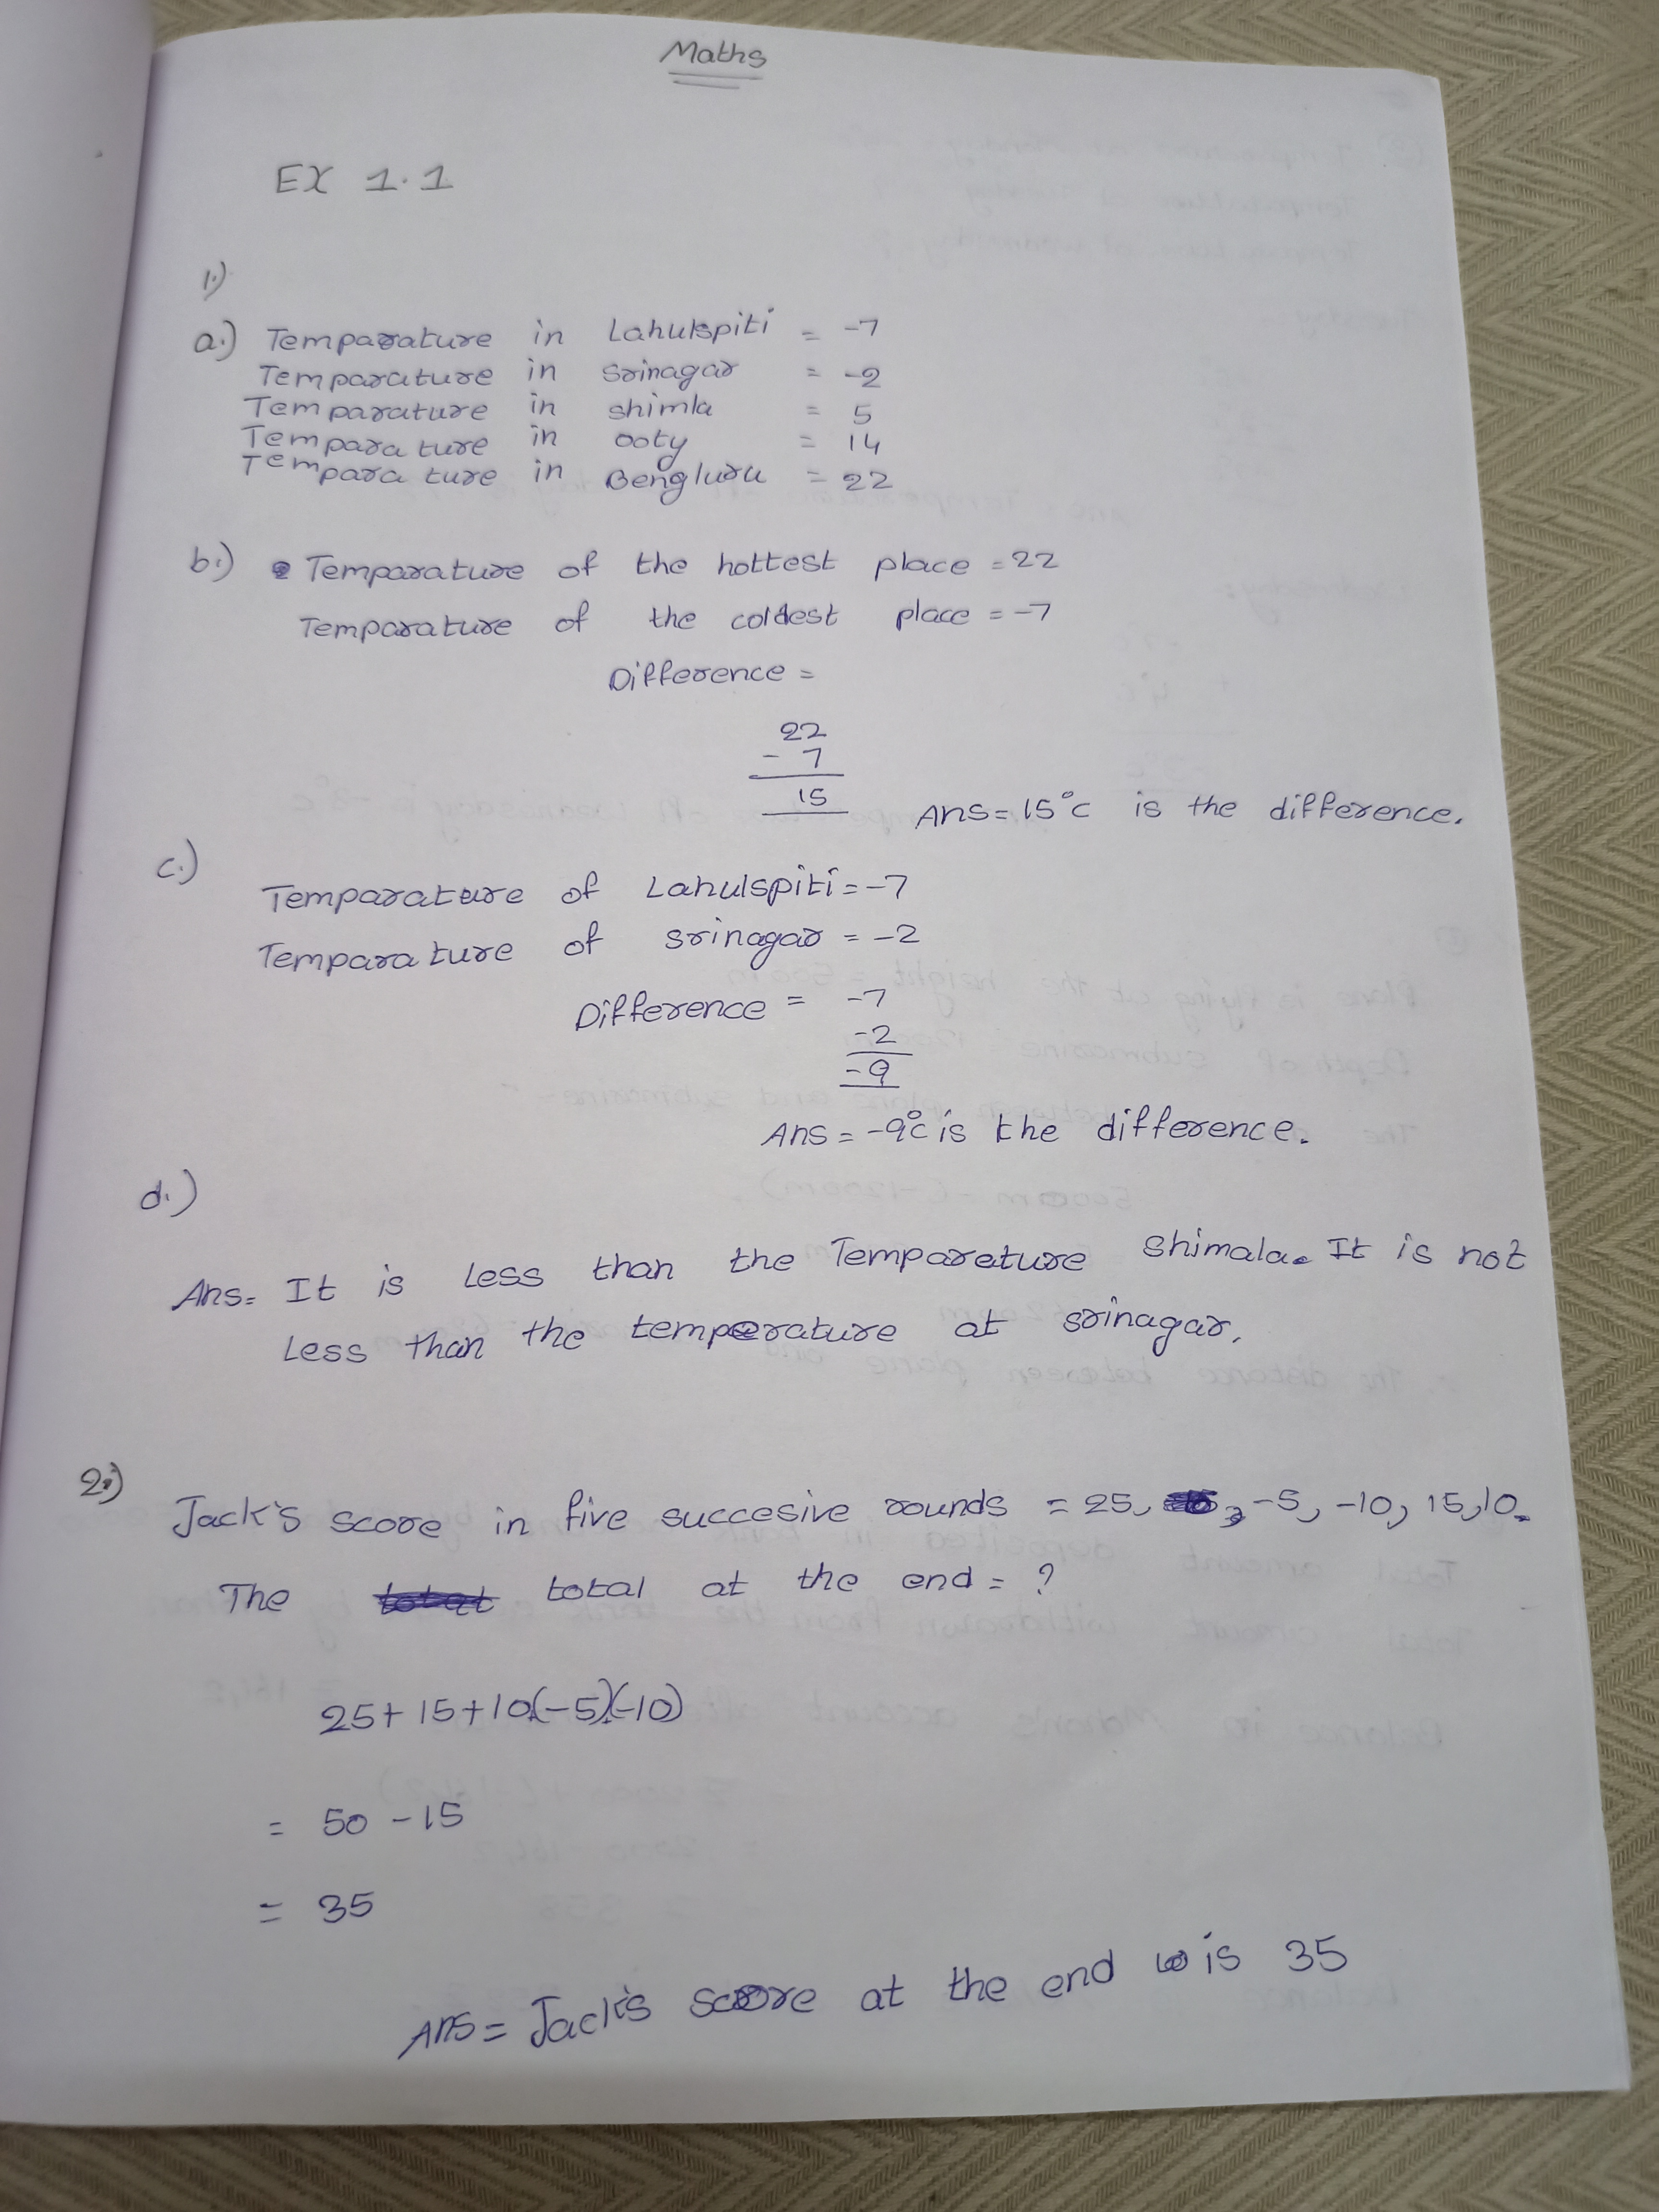 Maths
EX 1.1
1.)
a.) Temparature in Lahulspiti = -7
Temparature in Srinagar = -2
Temparature in shimla = 5
Temparature in ooty = 14
Temparature in Bengluru = 22
b.) Temparature of the hottest place = 22
Temparature of the coldest place = -7
Difference =
22
- 7
15
Ans = 15°c is the difference.
c.)
Temparature of Lahulspiti = -7
Temparature of srinagar = -2
Difference = -7
-2
-9
Ans = -9°c is the difference.
d.)
Ans. It is Less than the Temparature Shimala. It is not
Less than the temperature at srinagar.
2.)
Jack's score in five succesive rounds = 25, -5, -10, 15, 10.
The total at the end = ?
25+15+10(-5)(-10)
= 50 -15
= 35
Ans = Jack's score at the end is 35